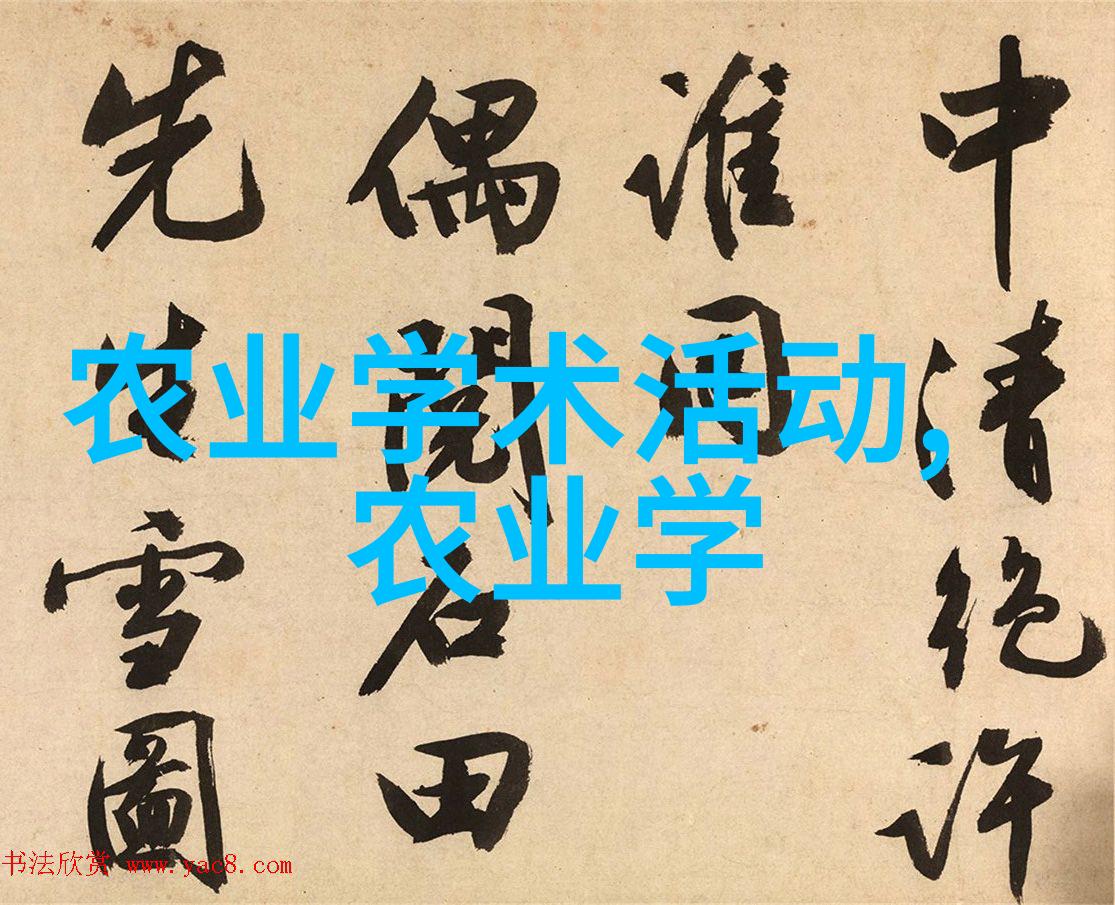 中清絶許
誰同
偶閱石田
先生雪圖
农业学术活动,
农业学
书法欣赏 www.yac8.com